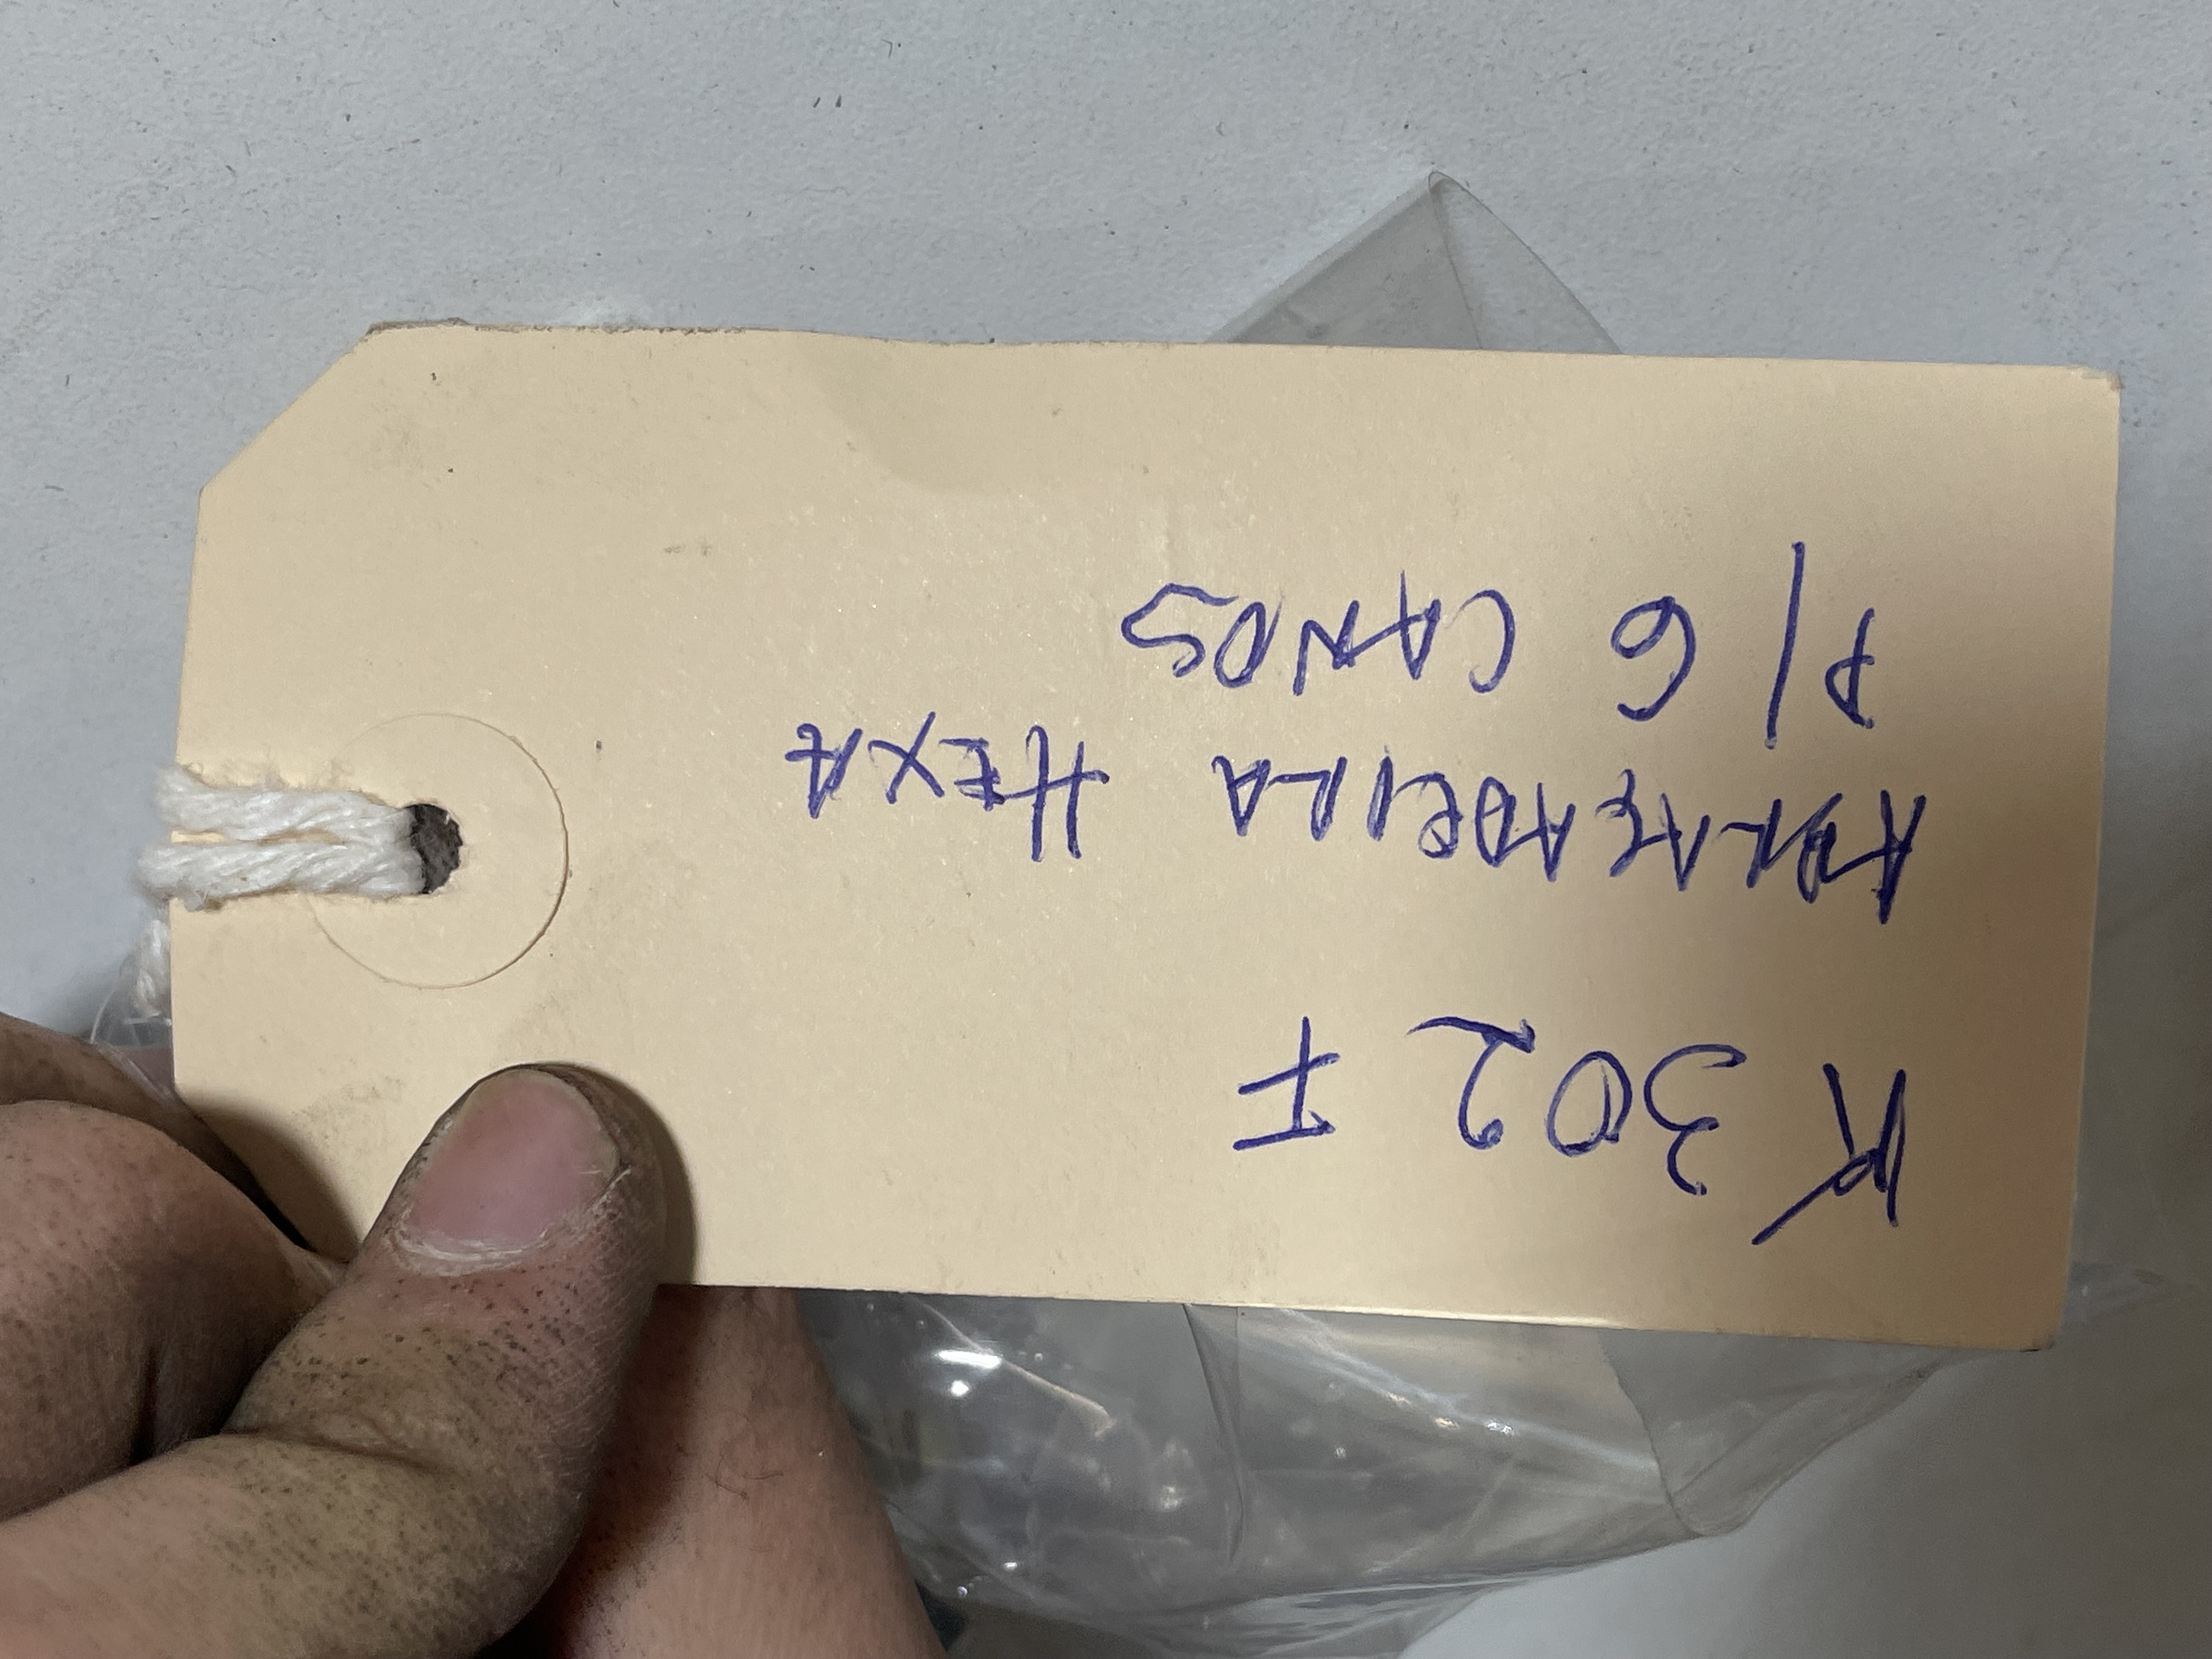 K 302 F
ABRAÇADEIRA HEXA
P/ 6 CANOS